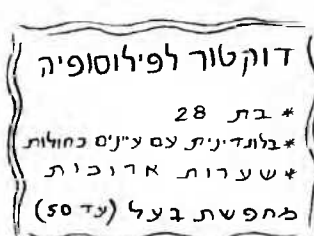 דוקטור לפילוסופיה
* בת 28
* בלונדינית עם עיינים כחולות
* שערות ארוכות
מחפשת בעל (עד 50)